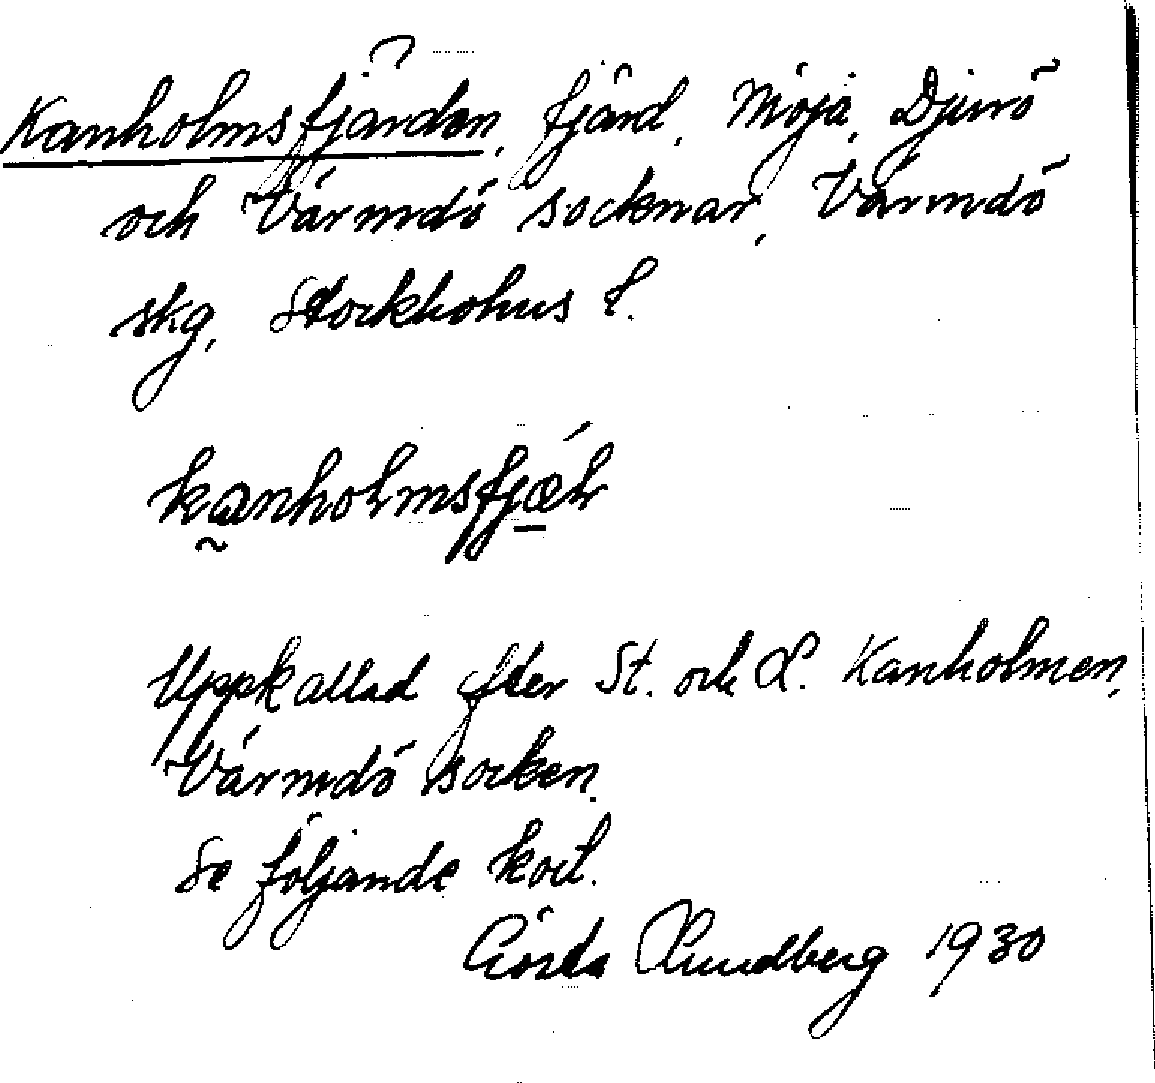 Kanholmsfjärden, fjärd, Möja, Djurö
och Värmdö socknar, Värmdö
skg, Stockholms l.
Uppkallad efter St. och L. Kanholmen,
Värmdö socken.
Se följande kort.
Gösta Lundberg 1930